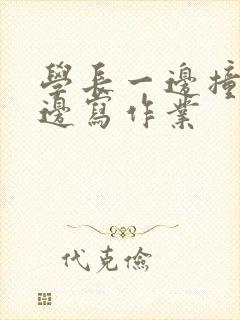 學長一邊撞
邊寫作業
代克儉